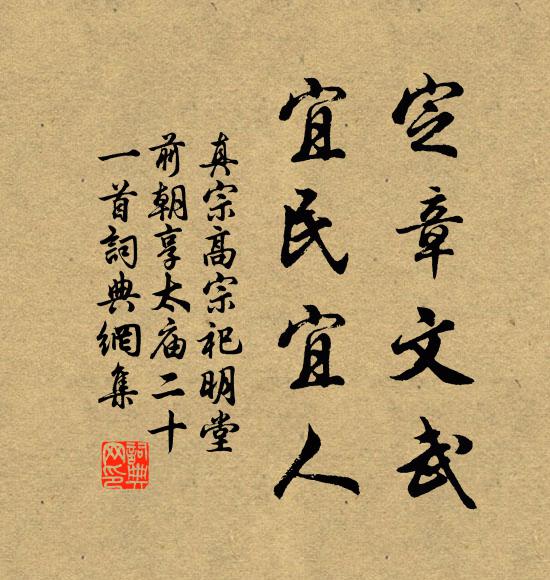 定章文武
宜民宜人
真宗高宗祀明堂
前朝享太庙二十
一首詞典網集
詞典
网印